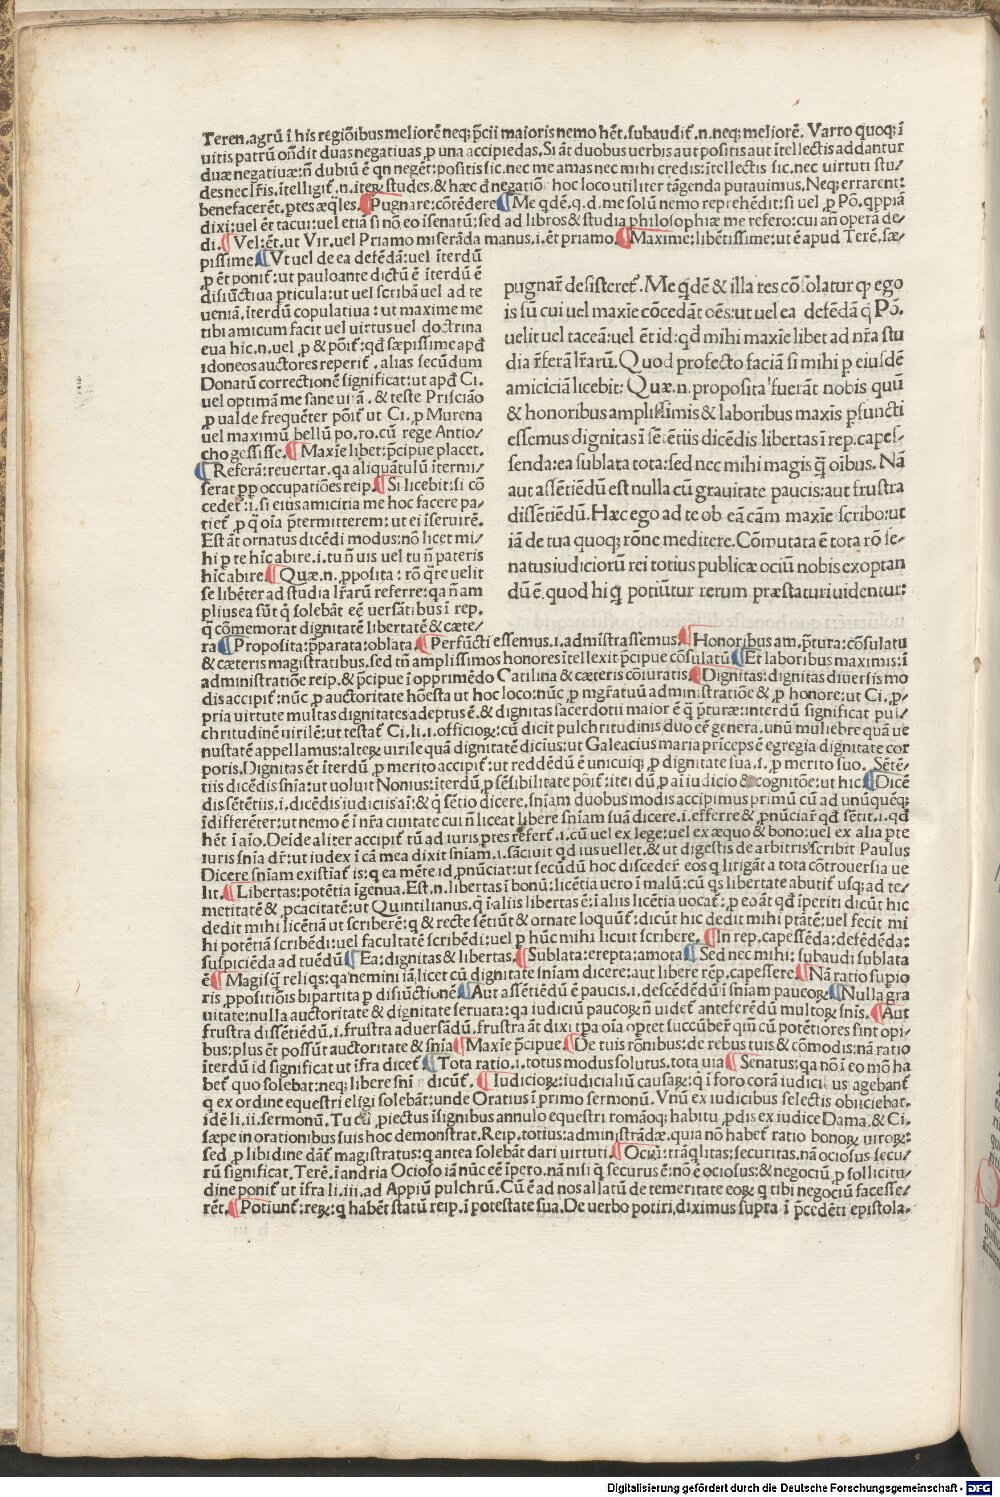 Teren.agrũ ĩ his regiõibus meliorẽ neq; p̃cii maioris nemo hẽt.subaudiť.n.neq; meliorẽ. Varro quoq; ĩ
uitis patrũ oñdit duas negatiuas ꝓ una accipiedas. Si ãt duobus uerbis aut positis aut ĩtellectis addantur
duæ negatiuæ: ñ dubiũ ẽ qn negẽt: positis sic. nec me amas nec mihi credis: ĩtellectis sic. nec uirtuti stu/
des nec lr̃is. ĩtelligiť.n. iteꝝ studes. & hæc đ negatiõe hoc loco utiliter tãgenda putauimus. Neq; errarent:
benefacerẽt. ꝑtes æq̃les. ¶ Pugnare: cõtẽdere ¶ Me qdẽ. q.d. me solũ nemo reprehẽdit: si uel ꝓ Põ. qppiã
dixi: uel ẽt tacui: uel etiã si nõ eo i senatũ: sed ad libros & studia philosophiæ me refero: cui añ opera de/
di. ¶ Vel: ẽt. ut Vir. uel Priamo miserãda manus. i. ẽt priamo. ¶ Maxime: libẽtissime: ut ẽ apud Terẽ. sæ/
pissime. ¶ Vt uel de ea defẽdã: uel ĩterdũ
ꝓ ẽt poniť: ut paulo ante dictũ ẽ ĩterdũ ẽ
disiũctiua ꝑticula: ut uel scribã uel ad te
ueniã. ĩterdũ copulatiua: ut maxime me
tibi amicum facit uel uirtus uel doctrina
eua hĩc. n. uel ꝓ & põiť: qđ sæpissime apđ
idoneos auctores reperiť. alias secũdum
Donatũ correctionẽ significat: ut apđ Ci.
uel optimã me sane uiã. & teste Priscião
ꝓ ualde frequẽter põiť ut Ci. ꝓ Murena
uel maximũ bellũ po. ro. cũ rege Antio/
cho gessisse. ¶ Maxĩe liber: p̃cipue placet.
¶ Referã: reuertar. qa aliquãtulũ itermi/
serat ꝓp occupatiões reip. ¶ Si licebit: si cõ
cedeť: i. si eius amicitia me hoc facere pa/
tieť ꝓ q̃ oĩa p̃termitterem: ut ei ĩseruirẽ.
Est ãt ornatus dicẽdi modus: nõ licet mi/
hi ꝑ te hĩc abire. i. tu ñ uis uel tu ñ pateris
hĩc abire. ¶ Quæ. n. ꝓposita: rõ q̃re uelit
se libẽter ad studia lr̃arũ referre: qa ñ am
plius ea sũt q̃ solebãt eẽ uersãtibus ĩ rep.
q̃ cõmemorat dignitatẽ libertatẽ & cæte/
pugnar̃ desisteret̃. Me q̃dẽ & illa res cõsolatur ꝙ ego
is sũ cui uel maxĩe cõcedãt oẽs: ut uel ea defẽdã q̃ Põ.
uelit uel taceã: uel ẽt id: qđ mihi maxĩe libet ad nr̃a stu
dia r̃ferã lr̃arũ. Quod profecto faciã si mihi ꝑ eiusdẽ
amiciciã licebit: Quæ. n. proposita fuerãt nobis quũ
& honoribus amplissimis & laboribus maxĩs ꝑfuncti
essemus dignitas ĩ sẽtẽtiis dicẽdis libertas ĩ rep. capes-
senda: ea sublata tota: sed nec mihi magis q̃ oĩbus. Nã
aut assẽtiẽdũ est nulla cũ grauitate paucis: aut frustra
dissẽtiẽdũ. Hæc ego ad te ob eã cãm maxĩe scribo: ut
iã de tua quoq; rõne meditere. Cõmutata ẽ tota rõ se-
natus iudiciorũ rei totius publicæ ociũ nobis exoptan
dũ ẽ. quod hi q̃ potiũtur rerum præstaturi uidentur:
ra ¶ Proposita: p̃parata: oblata. ¶ Perfũcti essemus. i. admĩstrassemus. ¶ Honoribus am. p̃tura: cõsulatu
& cæteris magistratibus. sed tñ amplissimos honores ĩtellexit p̃cipue cõsulatũ ¶ Et laboribus maximis: ĩ
administratiõe reip. & p̃cipue ĩ opprimẽdo Catilina & cæteris cõiuratis. ¶ Dignitas: dignitas diuersis mo
dis accipiť: nũc ꝓ auctoritate hõesta ut hoc loco: nũc ꝓ mgr̃atuũ administratiõe & ꝓ honore: ut Ci. ꝓ/
pria uirtute multas dignitates adeptus ẽ. & dignitas sacerdotii maior ẽ q̃ p̃turæ: interdũ significat pul/
chritudinẽ uirilẽ: ut testať Ci. li. i. officioꝝ: cũ dicit pulchritudinis duo eẽ genera. unũ muliebre quã ue
nustatẽ appellamus: alteꝝ uirile quã dignitatẽ dicius: ut Galeacius maria prĩceps ẽ egregia dignitate cor
poris. Dignitas ẽt ĩterdũ ꝓ merito accipiť: ut reddẽdũ ẽ unicuiq; ꝓ dignitate sua. i. ꝓ merito suo. Sẽtẽ/
tiis dicẽdis sñia: ut uoluit Nonius: ĩterdũ ꝓ sẽsibilitate põiť: ĩterdũ ꝓ aĩ iudicio & cognitõe: ut hic. ¶ Dicẽ
dis sẽtẽtiis. i. dicẽdis iudiciis aĩ: & q̃ sẽtio dicere. sñiam duobus modis accipimus primũ cũ ad unũquẽq;
ĩdifferẽter: ut nemo ẽ ĩ nr̃a ciuitate cui ñ liceat libere sñiam suã dicere. i. efferre & ꝓnũciar̃ qđ sẽtit. i. qđ
hẽt ĩ aĩo. Deide aliter accipiť tũ ad iuris ꝑtes referť. i. cũ uel ex lege: uel ex æquo & bono: uel ex alia ꝑte
iuris sñia dr̃: ut iudex ĩ cã mea dixit sñiam. i. sãciuit qđ ius uellet. & ut digestis de arbitris scribit Paulus
Dicere sñiam existiať is: q ea mẽte id ꝓnũciat: ut secũdũ hoc disceder̃ eos q litigãt a tota cõtrouersia ue
lit. ¶ Libertas: potẽtia ĩgenua. Est. n. libertas ĩ bonũ: licẽtia uero ĩ malũ: cũ qs libertate abutiť usq; ad te/
meritatẽ & ꝓcacitatẽ: ut Quintilianus. q̃ ĩ aliis libertas ẽ: ĩ aliis licẽtia uocať: ꝓ eo ãt qđ ĩperiti dicũt hic
dedit mihi licẽtiã ut scriberẽ: q & recte sẽtiũt & ornate loquũť: dicũt hic dedit mihi ptãtẽ: uel fecit mi
hi potẽtiã scribẽdi: uel facultatẽ scribẽdi: uel ꝑ hũc mihi licuit scribere. ¶ In rep. capessẽda: defẽdẽda:
suspiciẽda ad tuẽdũ ¶ Ea: dignitas & libertas. ¶ Sublata: erepta: amota ¶ Sed nec mihi: subaudi sublata
ẽ ¶ Magis q̃ reliqs: qa nemini iã licet cũ dignitate sñiam dicere: aut libere rẽp. capessere ¶ Nã ratio supio
ris ꝓpositiõis bipartita ꝑ disiũctionẽ ¶ Aut assẽtiẽdũ ẽ paucis. i. descẽdẽdũ ĩ sñiam paucoꝝ ¶ Nulla gra
uitate: nulla auctoritatẽ & dignitate seruata: qa iudiciũ paucoꝝ ñ uideť anteferẽdũ multoꝝ sñis. ¶ Aut
frustra dissẽtiẽdũ. i. frustra aduersãdũ. frustra ãt dixit ꝑpa oĩa optet succũber̃ qm̃ cũ potẽtiores sint opi/
bus: plus ẽt possũt auctoritate & sñia ¶ Maxĩe p̃cipue. ¶ De tuis rõnibus: de rebus tuis & cõmodis: nã ratio
ĩterdũ id significat ut ĩfra diceť ¶ Tota ratio. i. totus modus solutus. tota uia ¶ Senatus: qa nõ ĩ eo mõ ha
beť quo solebat: neq; libere sñi dicũť. ¶ Iudicioꝝ: iudicialiũ causaꝝ: q̃ ĩ foro corã iudici us agebanť
q ex ordine equestri eligi solebãt: unde Oratius ĩ primo sermonũ. Vnũ ex iudicibus selectis obiiciebat.
idẽ li. ii. sermonũ. Tu cũ ꝓiectus ĩsignibus annulo equestri romãoq; habitu ꝓdis ex iudice Dama. & Ci.
sæpe in orationibus suis hoc demonstrat. Reip. totius: administrãdæ. quia nõ habeť ratio bonoꝝ uiroꝝ:
sed ꝓ libidine dãť magistratus: q antea solebãt dari uirtuti. ¶ Ociũ: trãq̃litas; securitas. nã ociosus secu/
rũ significat. Terẽ. ĩ andria Ocioso iã nũc eẽ ĩpero. nã nisi q̃ securus ẽ: nõ ẽ ociosus: & negociũ ꝓ sollicitu/
dine poniť ut ĩfra li. iii. ad Appiũ pulchrũ. Cũ ẽ ad nos allatũ de temeritate eoꝝ q tibi negociũ facesse/
rẽt. ¶ Potiunť: reꝝ: q habẽt statũ reip. ĩ potestate sua. De uerbo potiri. diximus supra ĩ p̃cedẽti epistola.
Digitalisierung gefördert durch die Deutsche Forschungsgemeinschaft - DFG